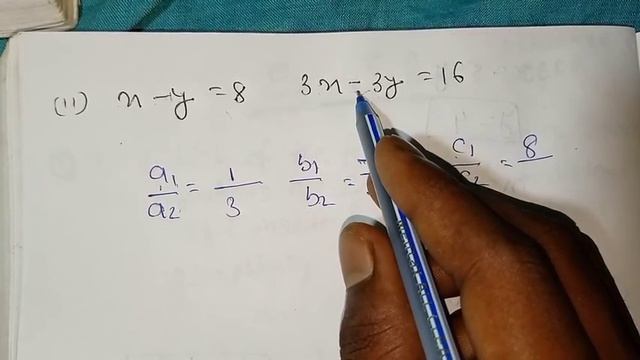 (ii) x - y = 8 3x - 3y = 16
a1/a2 = 1/3 b1/b2 = c1/c2 = 8